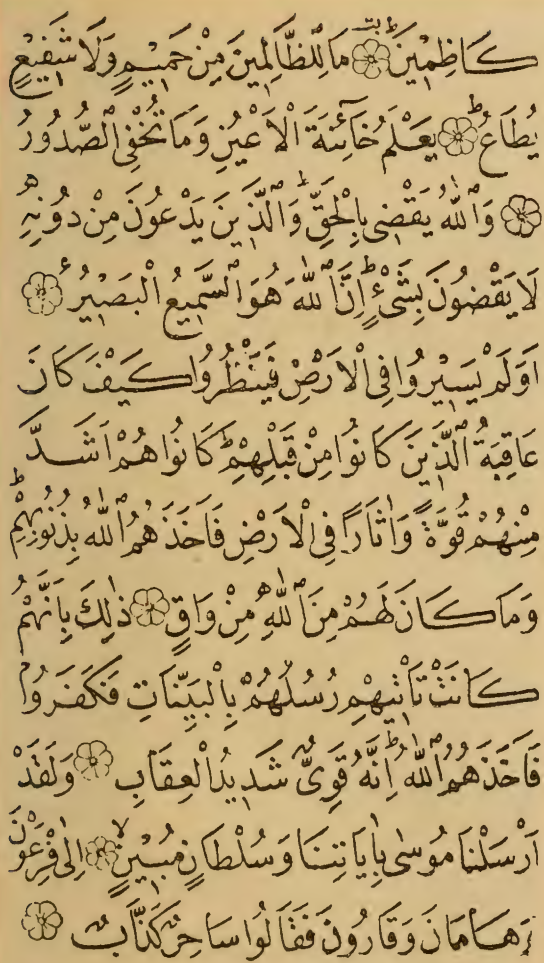 كَاظِمِينَۜ مَا لِلظَّالِمِينَ مِنْ حَمِيمٍ وَلَا شَفِيعٍ
يُطَاعُۜ يَعْلَمُ خَائِنَةَ الْاَعْيُنِ وَمَا تُخْفِى الصُّدُورُ
وَاللّٰهُ يَقْضِى بِالْحَقِّۜ وَالَّذِينَ يَدْعُونَ مِنْ دُونِهِ
لَا يَقْضُونَ بِشَىْءٍۜ اِنَّ اللّٰهَ هُوَ السَّمِيعُ الْبَصِيرُ
اَوَلَمْ يَسِيرُوا فِى الْاَرْضِ فَيَنْظُرُوا كَيْفَ كَانَ
عَاقِبَةُ الَّذِينَ كَانُوا مِنْ قَبْلِهِمْۜ كَانُوا هُمْ اَشَدَّ
مِنْهُمْ قُوَّةً وَاٰثَارًا فِى الْاَرْضِ فَاَخَذَهُمُ اللّٰهُ بِذُنُوبِهِمْۜ
وَمَا كَانَ لَهُمْ مِنَ اللّٰهِ مِنْ وَاقٍ ذٰلِكَ بِاَنَّهُمْ
كَانَتْ تَاْتِيهِمْ رُسُلُهُمْ بِالْبَيِّنَاتِ فَكَفَرُوا
فَاَخَذَهُمُ اللّٰهُۜ اِنَّهُ قَوِىٌّ شَدِيدُ الْعِقَابِ وَلَقَدْ
اَرْسَلْنَا مُوسٰى بِاٰيَاتِنَا وَسُلْطَانٍ مُبِينٍ اِلٰى فِرْعَوْنَ
وَهَامَانَ وَقَارُونَ فَقَالُوا سَاحِرٌ كَذَّابٌ